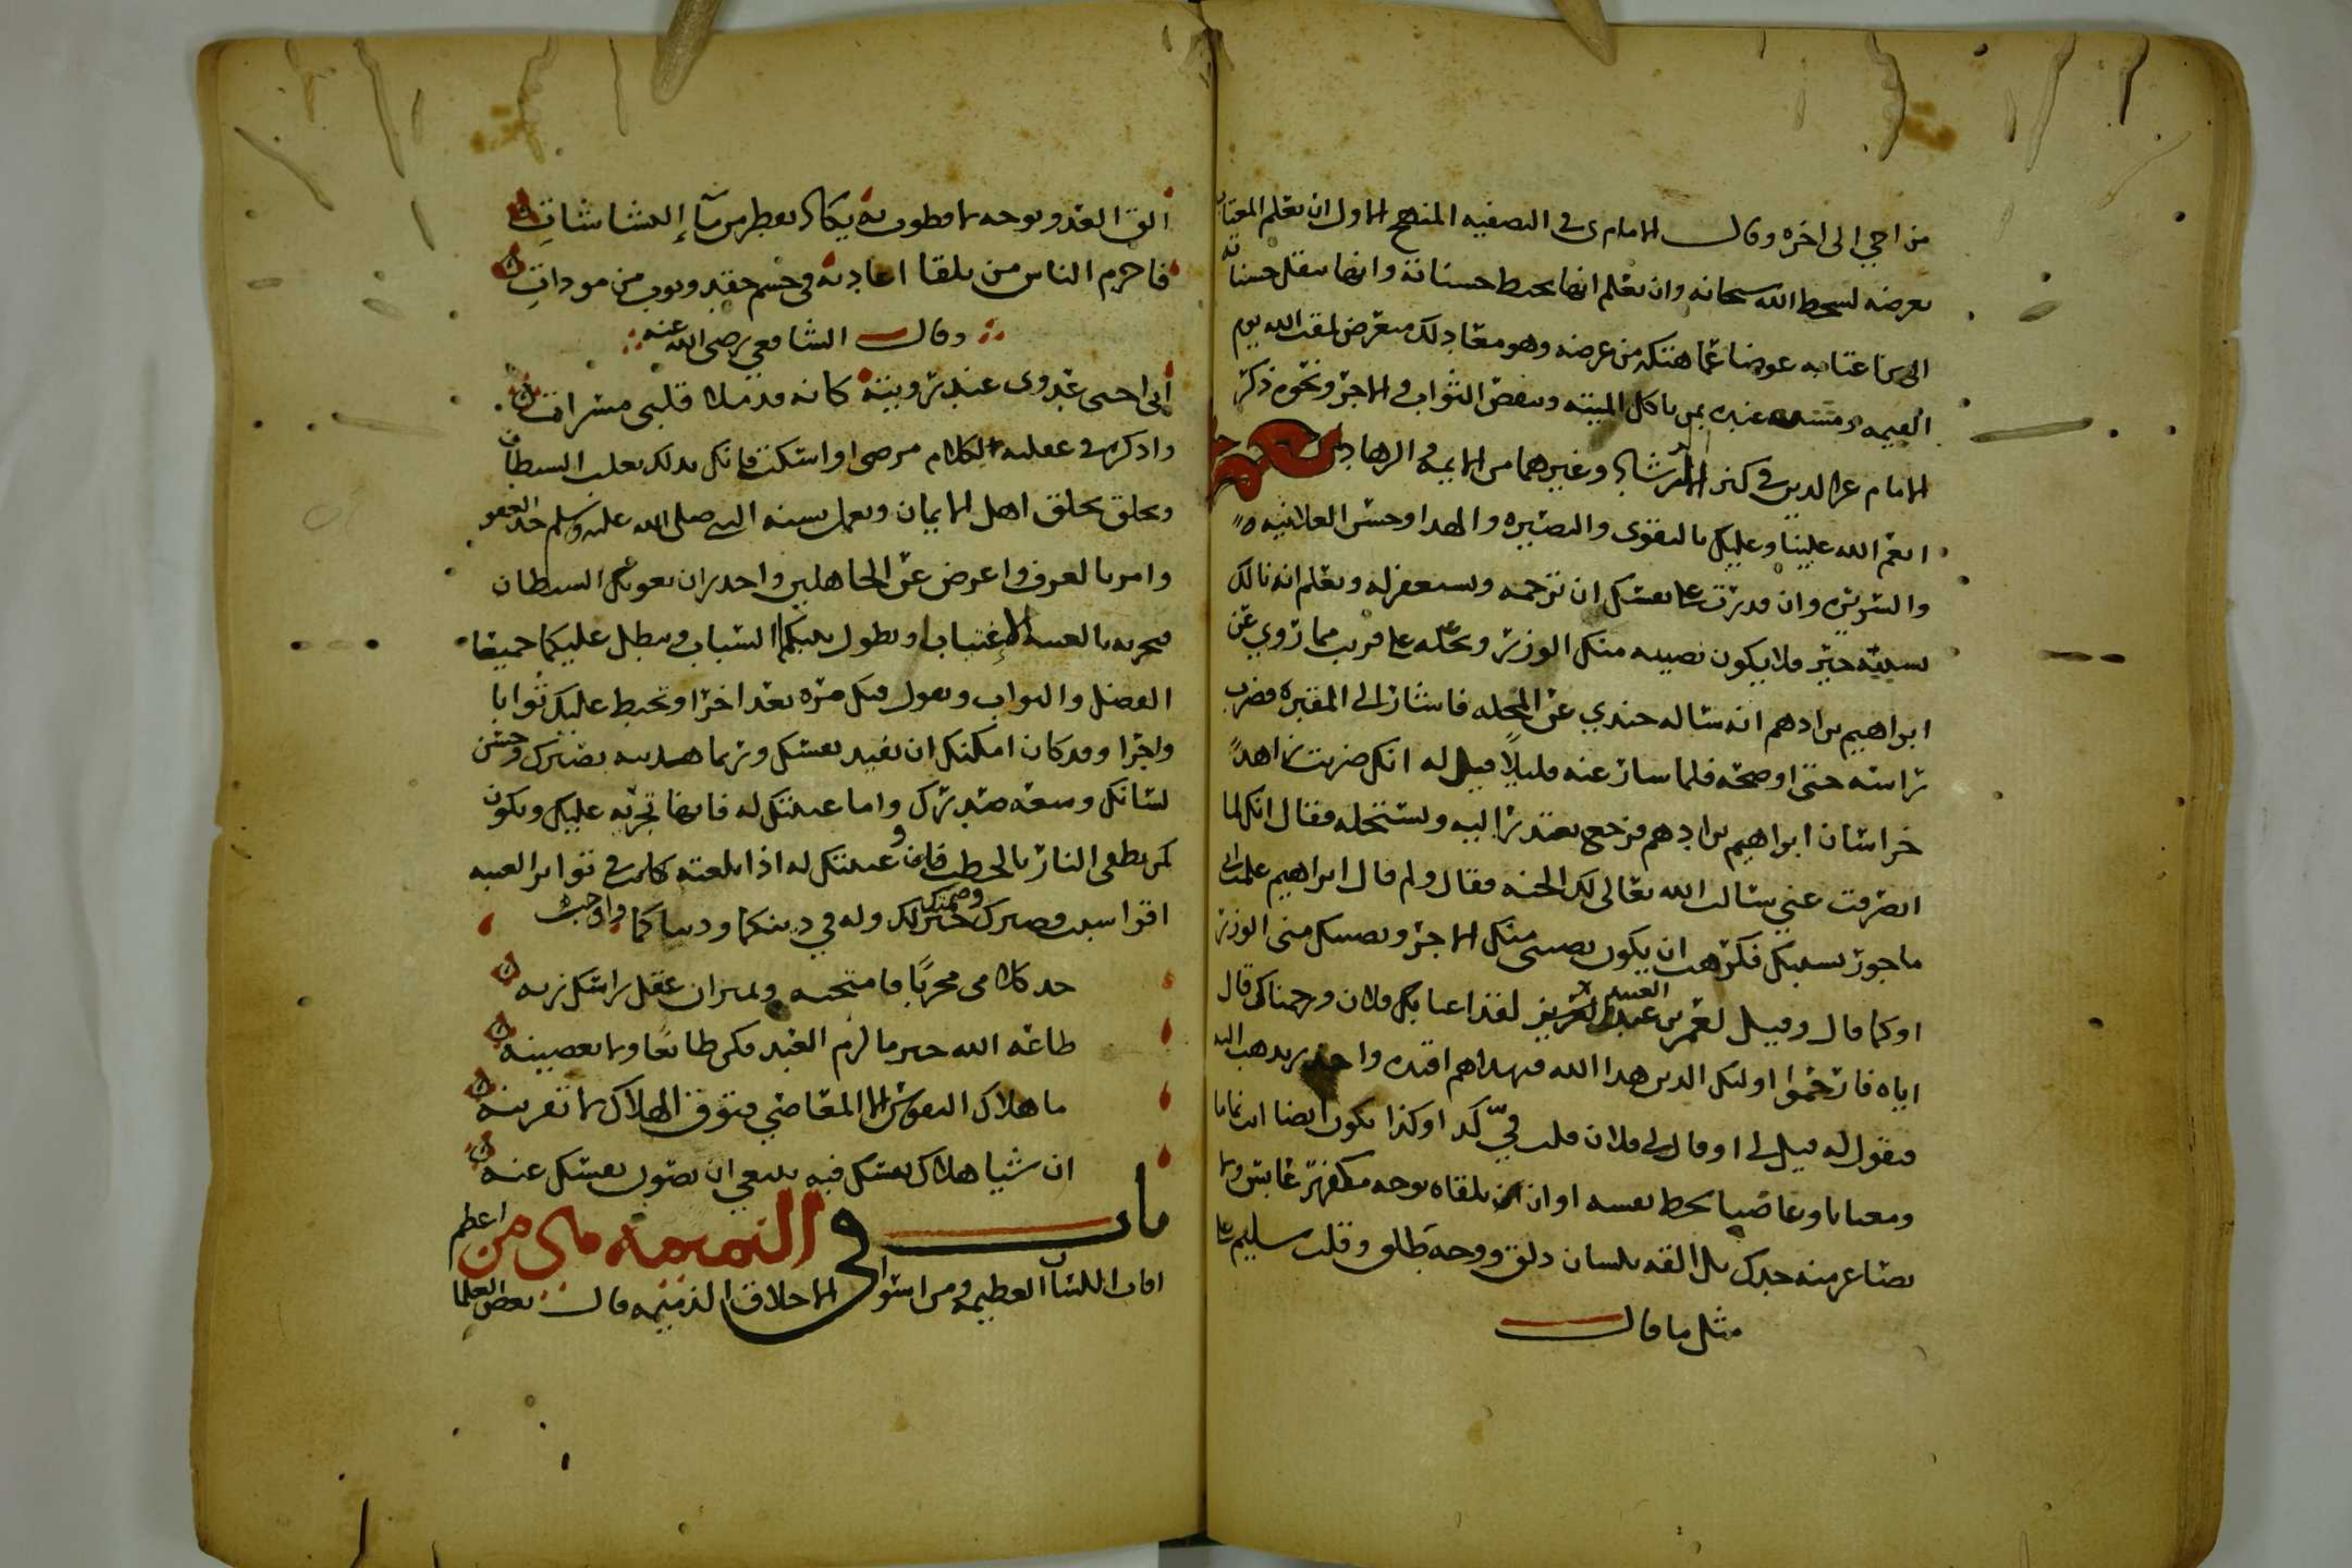 من اخي الى اخره وقال الامام ى في التصفيه المنهج الاول ان تعلم المغتاب
تعرضه لسخط الله سبحانه وان تعلم انها تحبط حسناته وانها تنقل حسناته
الى من اغتابه عوضا عما هتكه من عرضه وهو مع ذلك متعرض لمقت الله يوم
القيمه ومشبه عنده بمن ياكل الميته وينقص الثواب والاجر ونحوه ذكر
الامام عزالدين في كنز الرشاد وغيرهما من الايمه والزهاد
انعم الله علينا وعليك بالتقوى والبصيره والهدا وحسن العلانيه
والسريره وان قدرت على نفسك ان ترحمه وتستغفر له وتعلم انه نالك
بسببه خير فلا يكون نصيبه منك الوزر وتحمله على قريب مما روي عن
ابراهيم بن ادهم انه ساله جندي عن المحله فاشار الى المقبره فضرب
راسه حتى اوضحه فلما سار عنه قليلا قيل له انك ضربت زاهد
خراسان ابراهيم بن ادهم فرجع يعتذر اليه ويستحله فقال انك لما
انصرفت عني سالت الله تعالى لك الجنه فقال ولم قال ابراهيم علمت اني
ماجور بسببك فكرهت ان يكون نصيبي منك الاجر ونصيبك مني الوزر
او كما قال وقيل لعمر بن عبد العزيز لقد اغتابك فلان ورحمناك قال
اياه فارحموا اولئك الذين هدا الله فبهداهم اقتده واحذر يذهب اليه
فيقول له قيل لي او قال لي فلان قلت فيّ كذا وكذا تكون ايضا انت نماما
ومغتابا وعاصيا تحط نفسه او ان تلقاه بوجه مكفهر عابس ولا
تصاعر منه خدك بل القه بلسان ذلق ووجه طلق وقلب سليم على
مثل ما قال
الق العدو بوجه لا قطوب به يكاد يقطر من مآء البشاشات
فاحزم الناس من يلقا اعاديه في جسم حقد وثوب من مودات
وقال الشافعي رضي الله عنه
اني احيي عدوى عند رويته كانه قد ملا قلبي مسرات
واذكره في عقلبه الكلام مرضى او اسكت فانك بذلك تغلب الشيطان
وتخلق بخلق اهل الايمان وتعمل بسنه النبي صلى الله عليه وسلم خذ العفو
وامر بالعرف واعرض عن الجاهلين واحذر ان يغويك الشيطان
فتجزيه بالغيبه الاغتياب ويطول بينكما السباب ويبطل عليكما جميعا
الفضل والثواب ويعول فيك مره بعد اخرا وتحبط عليك ثوابا
واجرا وقد كان امكنك ان تفيد نفسك وربما هديته بصبرك وحسن
لسانك وسعه صدرك واما غيبتك له فانها تجربه عليك وتكون
كمن يطفي النار بالحطب فان غيبتك له اذا بلغته كانت في تواتر الغيبه
اقوا سبب وصبرك وصمتك خير لك وله في دينكما ودنياكما واوجب
خذ كلامي مجربًا فامتحنه ولميزان عقل راسك زنه
طاعه الله خير ما لزم العبد فكن طائعا ولا تعصينه
ما هلاك النفوس الا المعاصي فتوق الهلاك لا تقربنه
ان شيا هلاك نفسك فيه ينبغي ان تصون نفسك عنه
باب في النميمه هي من اعظم
افات اللسان العظيمه ومن اسوا الاخلاق الذميمه قال بعض العلما